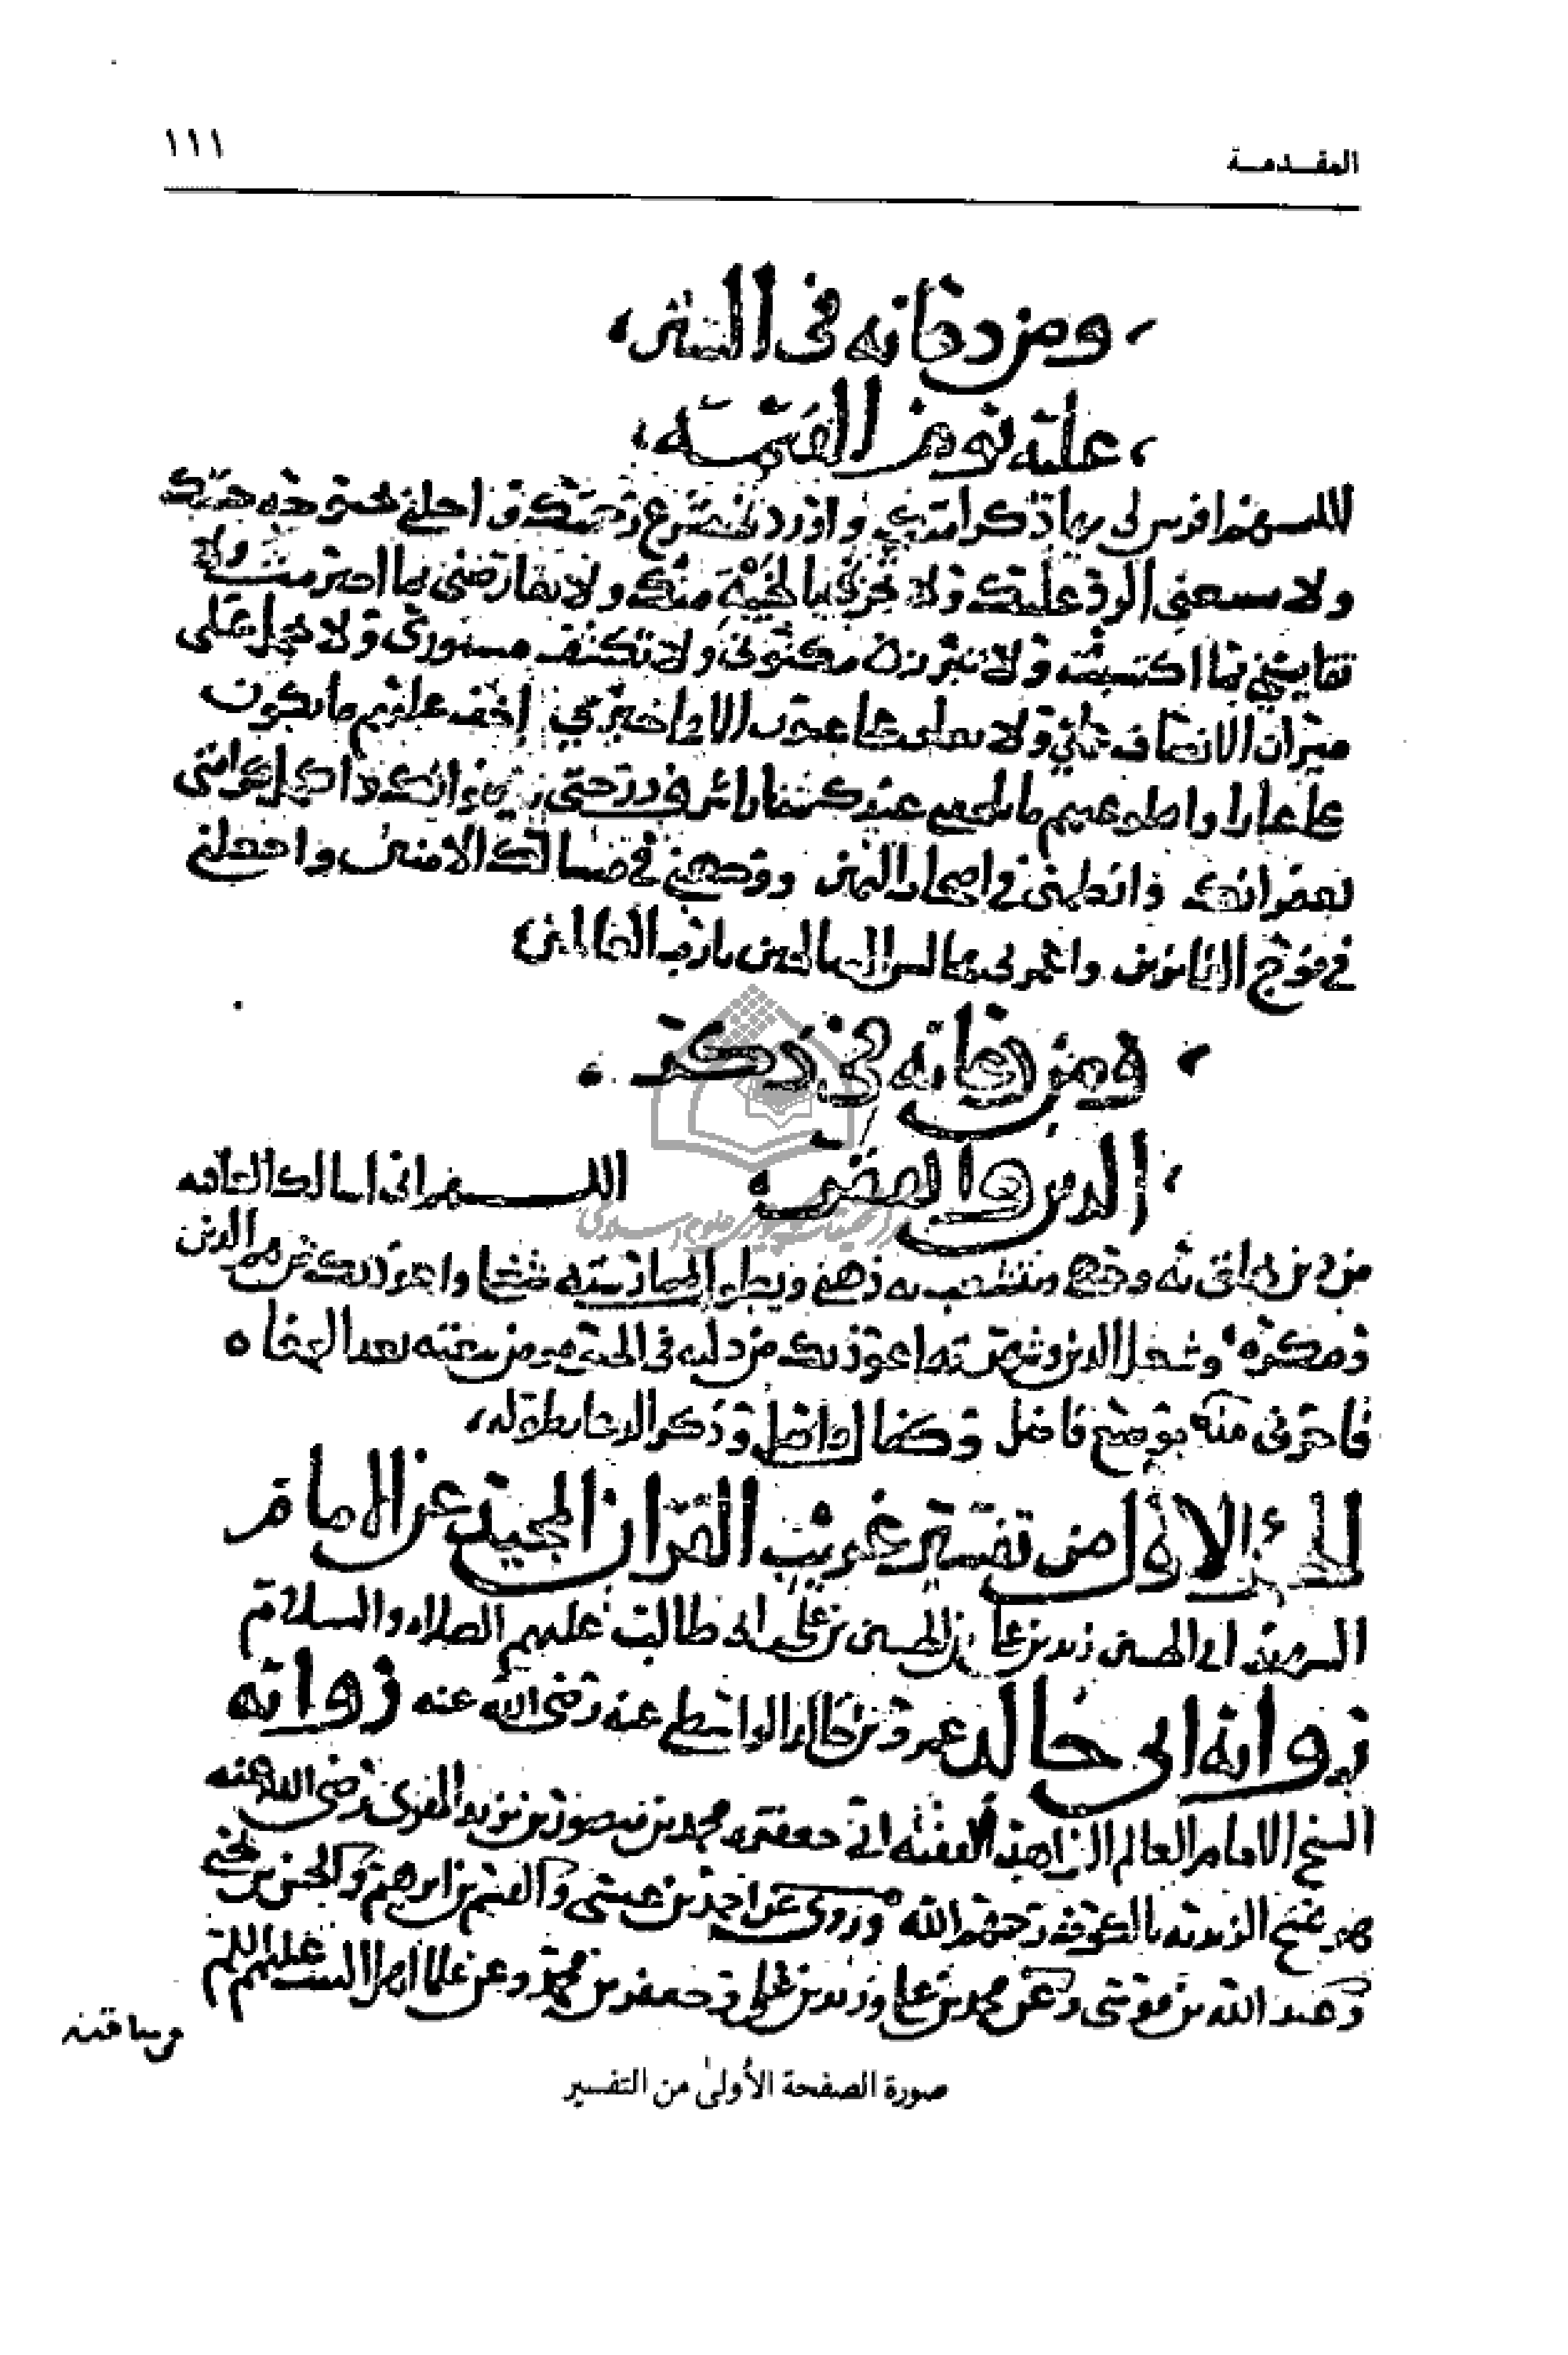 المقدمة
١١١
ومن دعائه في الستر
عليه يوم القيمه
اللهم افرش لي مهاد كرامتك واورد لي مشرع رحمتك واحلني بحبوحة جنتك
ولا تسمعني الرد عليك ولا تحزني بالخيبة منك ولا تقارضني بما اجترمت ولا
تقايضني بما اكتسبت ولا تبرزن مكتومي ولا تكشف مستوري ولا تحمل على
ميزان الانصاف عملي ولا تعلن على عيون الملا خبري اخف عليهم ما يكون
علي عارا واطو عنهم ما يلحقني عندك شنارا شرف درجتي برضوانك واكمل كرامتي
بغفرانك وانظمني في اصحاب اليمين ووجهني في مسالك الامنين واجعلني
في فوج الفايزين واعمر بي مجالس الصالحين يا رب العالمين
ومن دعائه في ذكر
الدين والعسر اللهم اني اسالك العافيه
من دين يخلق به وجهي ويتشعب به ذهني ويطول لممارسته شغلي واعوذ بك من هم الدين
وفكره وشغل الدين وسهره اعوذ بك من ذلته في الحيوه ومن تبعته بعد الوفاه
فاجرني منه بوسع فاضل وكفاف واصل وذكر الدعا بطوله
الجزء الاول من تفسير غريب القران المجيد عن الامام
السهيد ابي الحسين زيد بن علي بن الحسين بن علي بن ابي طالب عليهم الصلاه والسلام
رواية ابي خالد عمرو بن خالد الواسطي عنه رضي الله عنه رواية
الشيخ الامام العالم الزاهد الفقيه ابي جعفر محمد بن منصور بن يزيد المقري رضي الله عنه
هو شيخ الزيديه بالكوفه رحمهم الله وروى عن احمد بن عيسى والقسم بن ابرهيم والحسن بن يحيى
وعبد الله بن موسى وعن محمد بن علي وزيد بن علي وجعفر بن محمد وعن علماء اهل البيت عليهم السلم
ومناقبه
صورة الصفحة الأولى من التفسير